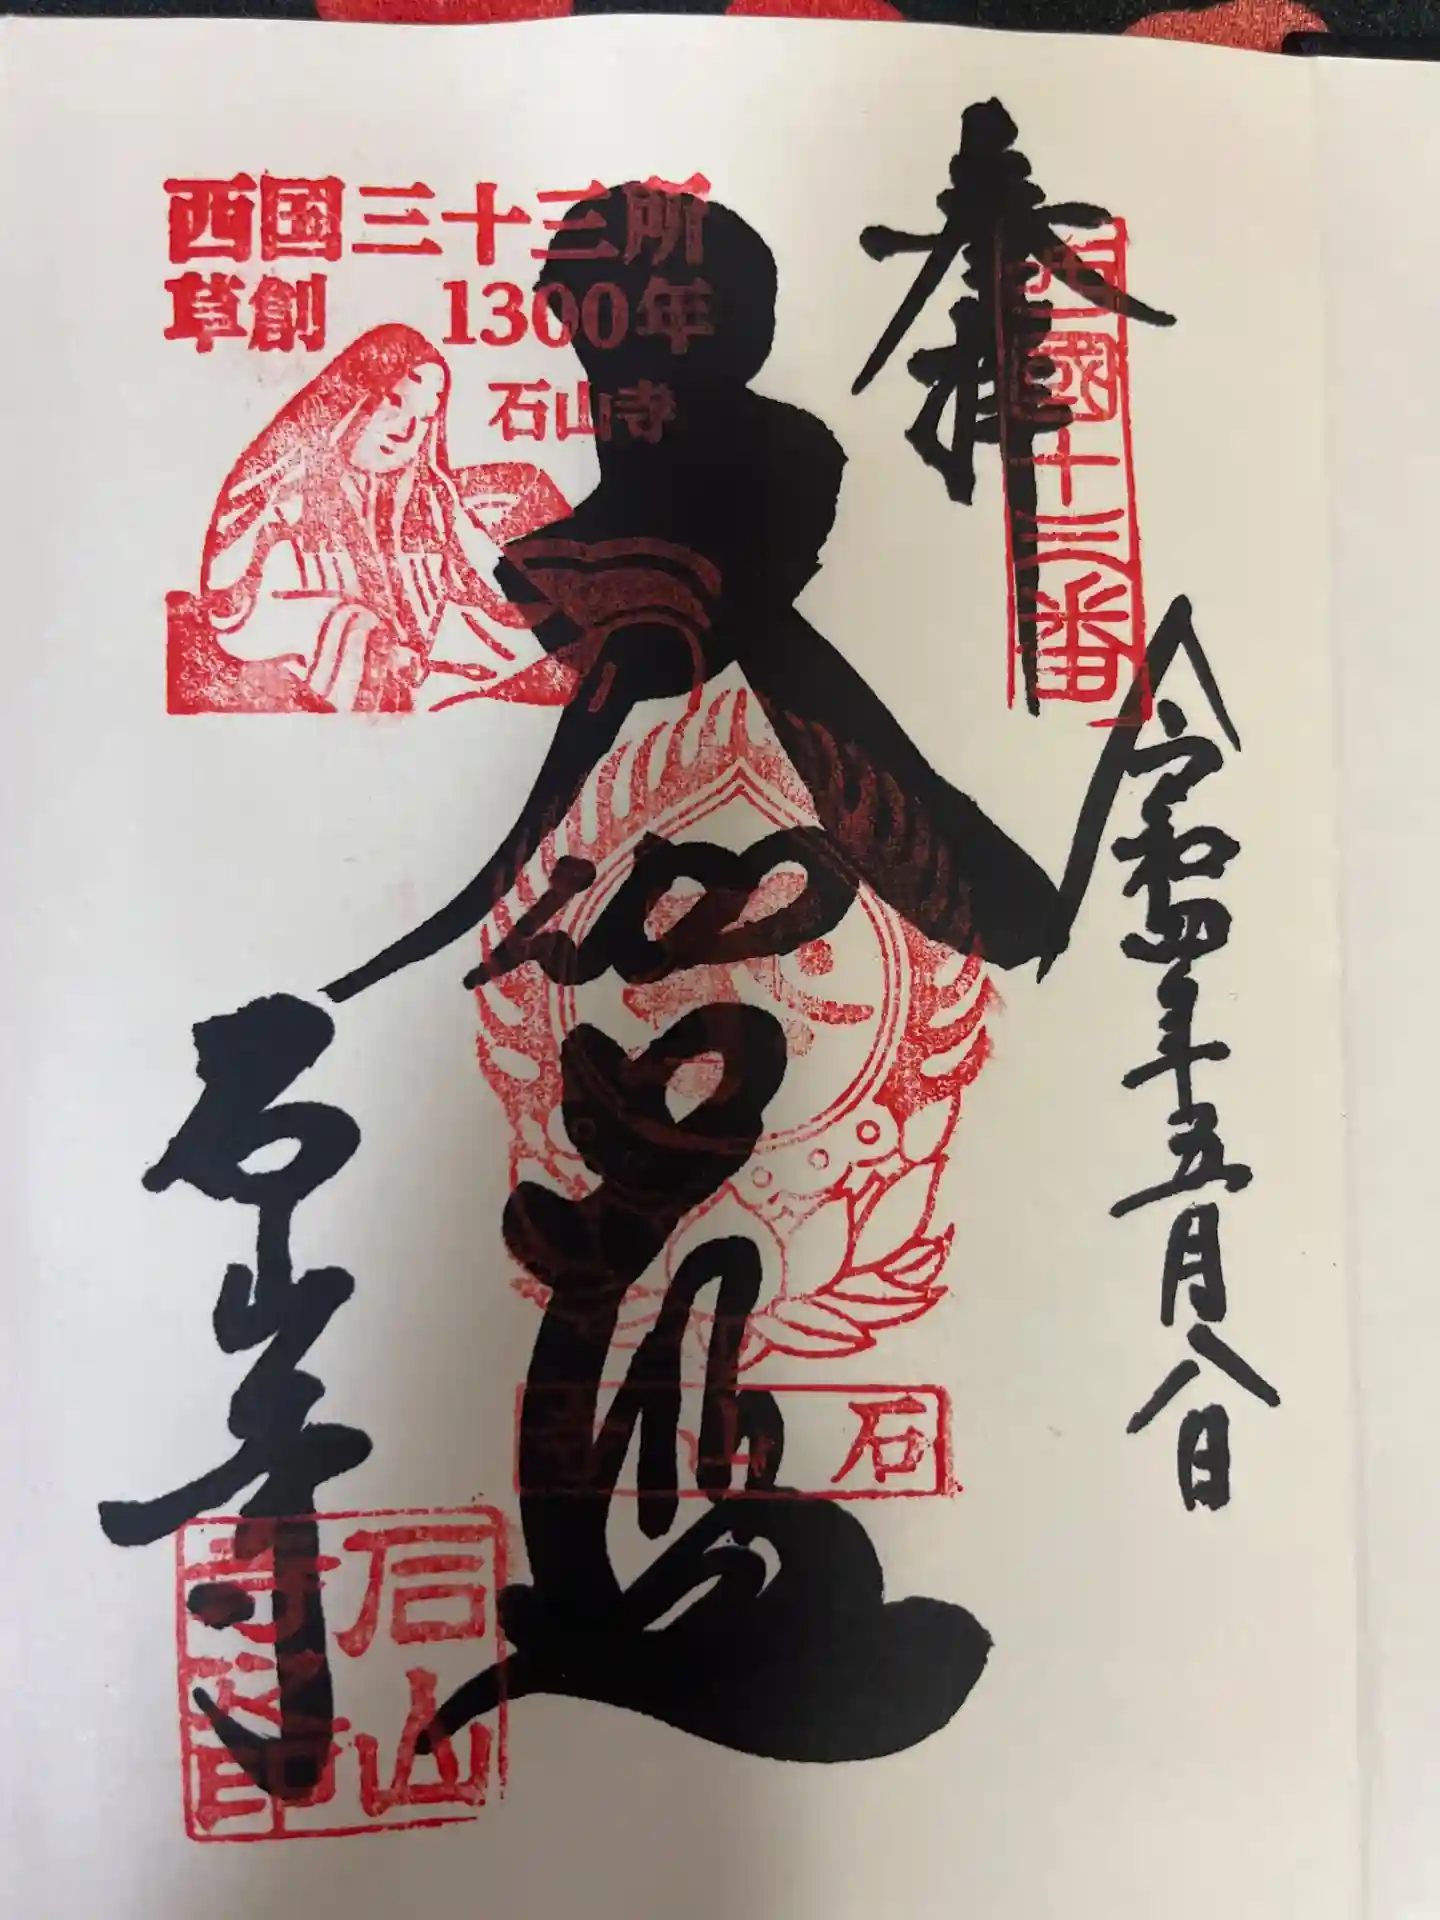 奉拝
西國十三番
令和四年五月八日
大伽藍
石山寺
西国三十三所
草創 1300年
石山寺
石山寺
石山寺之印